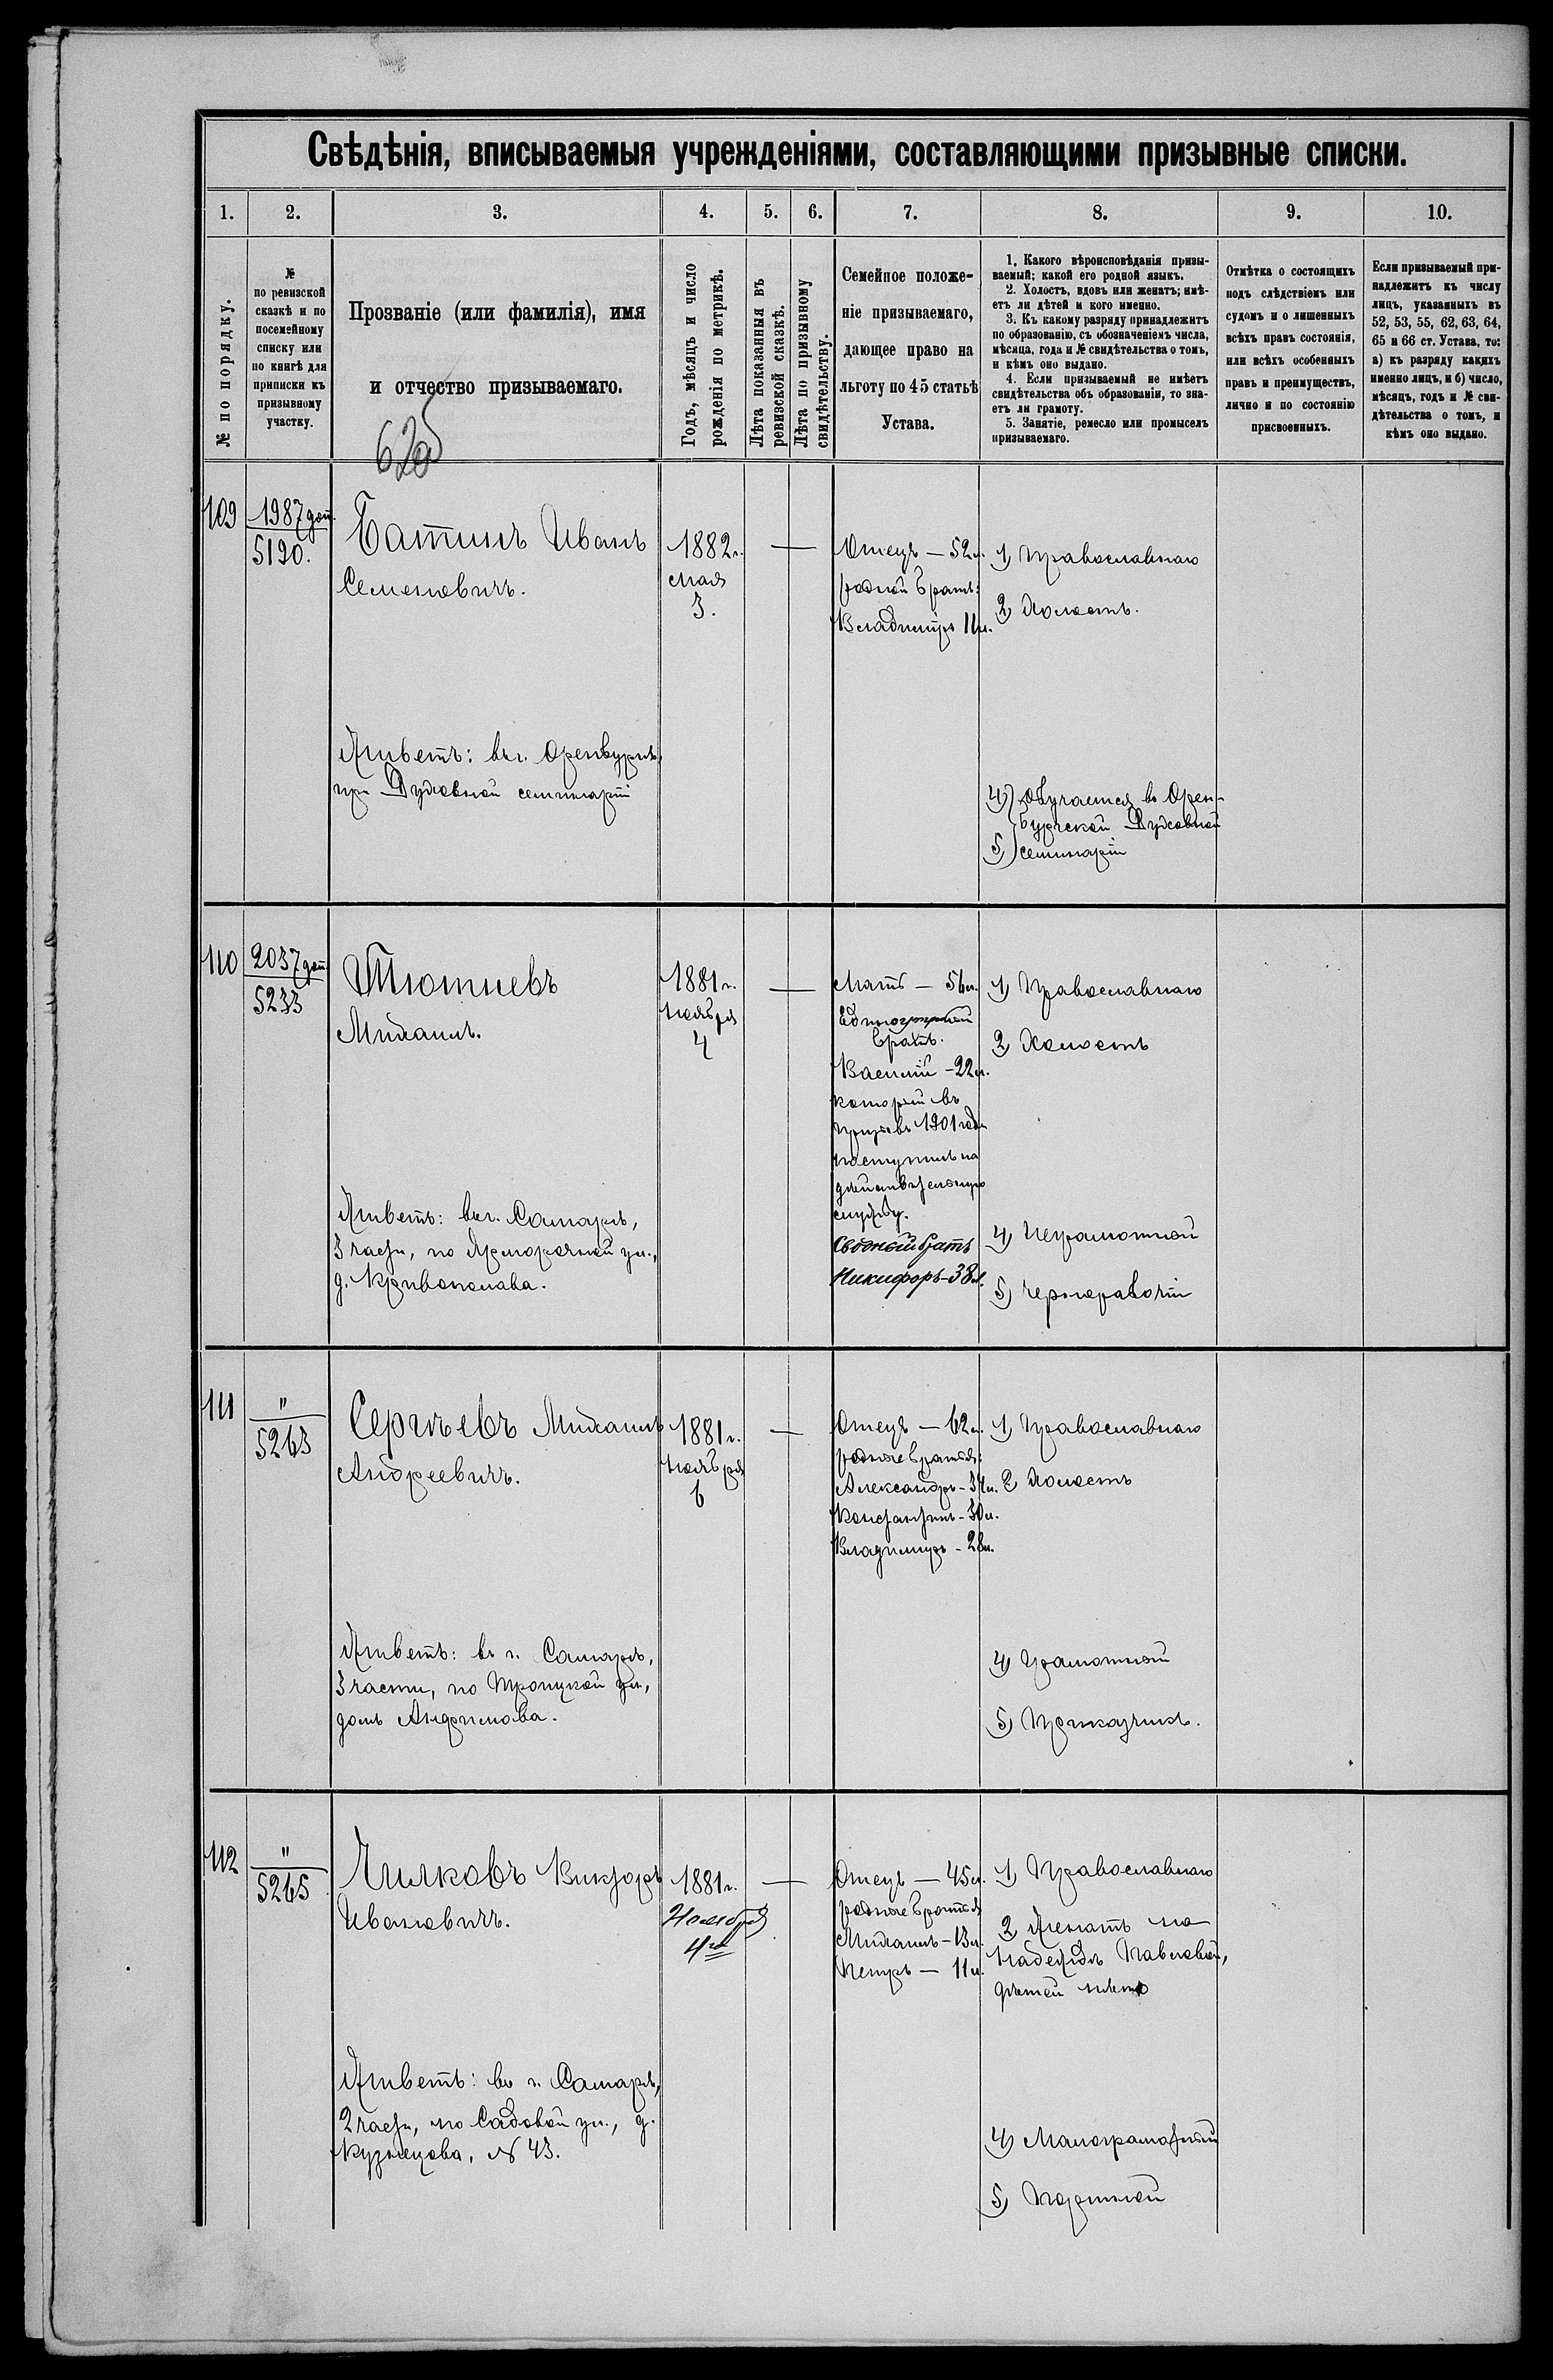 Свѣдѣнія, вписываемыя учрежденіями, составляющими призывные списки.
1. 2. 3. 4. 5. 6. 7. 8. 9. 10.
№ по порядку.
№
по ревизской
сказкѣ и по
посемейному
списку или
по книгѣ для
приписки къ
призывному
участку.
Прозваніе (или фамилія), имя
и отчество призываемаго.
Годъ, мѣсяцъ и число
рожденія по метрикѣ.
Лѣта показанныя въ
ревизской сказкѣ.
Лѣта по призывному
свидѣтельству.
Семейное положе-
ніе призываемаго,
дающее право на
льготу по 45 статьѣ
Устава.
1. Какого вѣроисповѣданія призы-
ваемый; какой его родной языкъ.
2. Холостъ, вдовъ или женатъ; имѣ-
етъ ли дѣтей и кого именно.
3. Къ какому разряду принадлежитъ
по образованію, съ обозначеніемъ числа,
мѣсяца, года и № свидѣтельства о томъ,
и кѣмъ оно выдано.
4. Если призываемый не имѣетъ
свидѣтельства объ образованіи, то зна-
етъ ли грамоту.
5. Занятіе, ремесло или промыселъ
призываемаго.
Отмѣтка о состоящихъ
подъ слѣдствіемъ или
судомъ и о лишенныхъ
всѣхъ правъ состоянія,
или всѣхъ особенныхъ
правъ и преимуществъ,
лично и по состоянію
присвоенныхъ.
Если призываемый при-
надлежитъ къ числу
лицъ, указанныхъ въ
52, 53, 55, 62, 63, 64,
65 и 66 ст. Устава, то:
а) къ разряду какихъ
именно лицъ, и б) число,
мѣсяцъ, годъ и № сви-
дѣтельства о томъ, и
кѣмъ оно выдано.
109
1987 доп.
5190.
Батинъ Иванъ
Семеновичъ.
Живетъ: въ г. Оренбургѣ,
при Духовной семинаріи
1882 г.
мая
3.
Отецъ — 52 л.
родной братъ:
Владиміръ 11 л.
1) Православнаго
2) Холостъ.
4) обучается въ Орен-
бургской Духовной
5) семинаріи
110
2037 доп.
5233
Тютневъ
Михаилъ.
Живетъ: въ г. Самарѣ,
3 части, по Ярморочной ул.,
д.
1881 г.
Ноября
4
Мать — 56 л.
Единоутробный
братъ.
Василій - 22 л.
который въ
призывъ 1901 года
поступилъ на
дѣйствительную
службу.
Сводный братъ
Никифоръ - 38 л.
1) Православнаго
2) Холостъ
4) Неграмотный
5) Чернорабочій
111
"
5263
Сергѣевъ Михаилъ
Андреевичъ.
Живетъ: въ г. Самарѣ,
3 части, по Троицкой ул.,
домъ Анфимова.
1881 г.
Ноября
6
Отецъ — 62 л.
родные братья:
Александръ - 34 л.
Константинъ - 30 л.
Владиміръ - 28 л.
1) Православнаго
2 Холостъ
4) Грамотный
5) Прикащикъ.
112
"
5265
Чилковъ Викторъ
Ивановичъ.
Живетъ: въ г. Самарѣ,
2 части, по Садовой ул., д.
Кузнецова, № 43.
1881 г.
Ноября
4го
Отецъ — 45 л.
родные братья
Михаилъ - 13 л.
Петръ — 11 л.
1) Православнаго
2 Женатъ на
Надеждѣ Павловой,
дѣтей нѣтъ
4) Малограмотный
5)